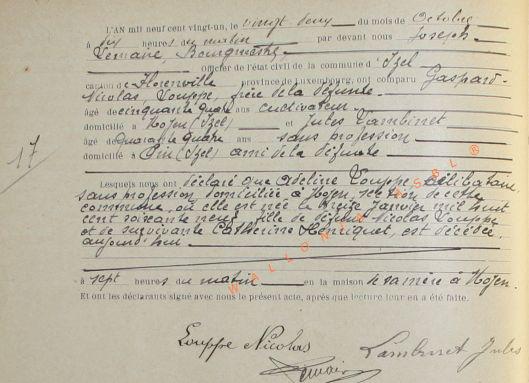 L'AN mil neuf cent vingt-un, le vingt deux du mois de Octobre
à dix heures du matin par devant nous Joseph
Bourgmestre
Officier de l'état civil de la commune d'Izel
canton de Florenville province de Luxembourg, ont comparu Gaspard-
Nicolas, Louppe, frère de la défunte
âgé de cinquante quatre ans cultivateur
domicilié à Mojen (Izel) et Jules Lambinet
âgé de quarante quatre ans sans profession
domicilié à Pin (Izel) ami de la défunte
17
Lesquels nous ont déclaré que Adeline Louppe célibataire
sans profession domiciliée à Mojen, section de cette
commune, où elle est née le treize Janvier mil huit
cent soixante neuf, fille de défunt Nicolas Louppe
et de survivante Catherine Henriquet, est décédée
aujourd'hui
à sept heures du matin en la maison de sa mère à Mojen.
Et ont les déclarants signé avec nous le présent acte, après que lecture leur en a été faite.
Louppe Nicolas
Lambinet Jules
WALLONIA ASBL ®